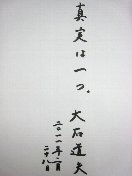 真実は一つ。
大石道夫
二〇一一年二月
二十八日